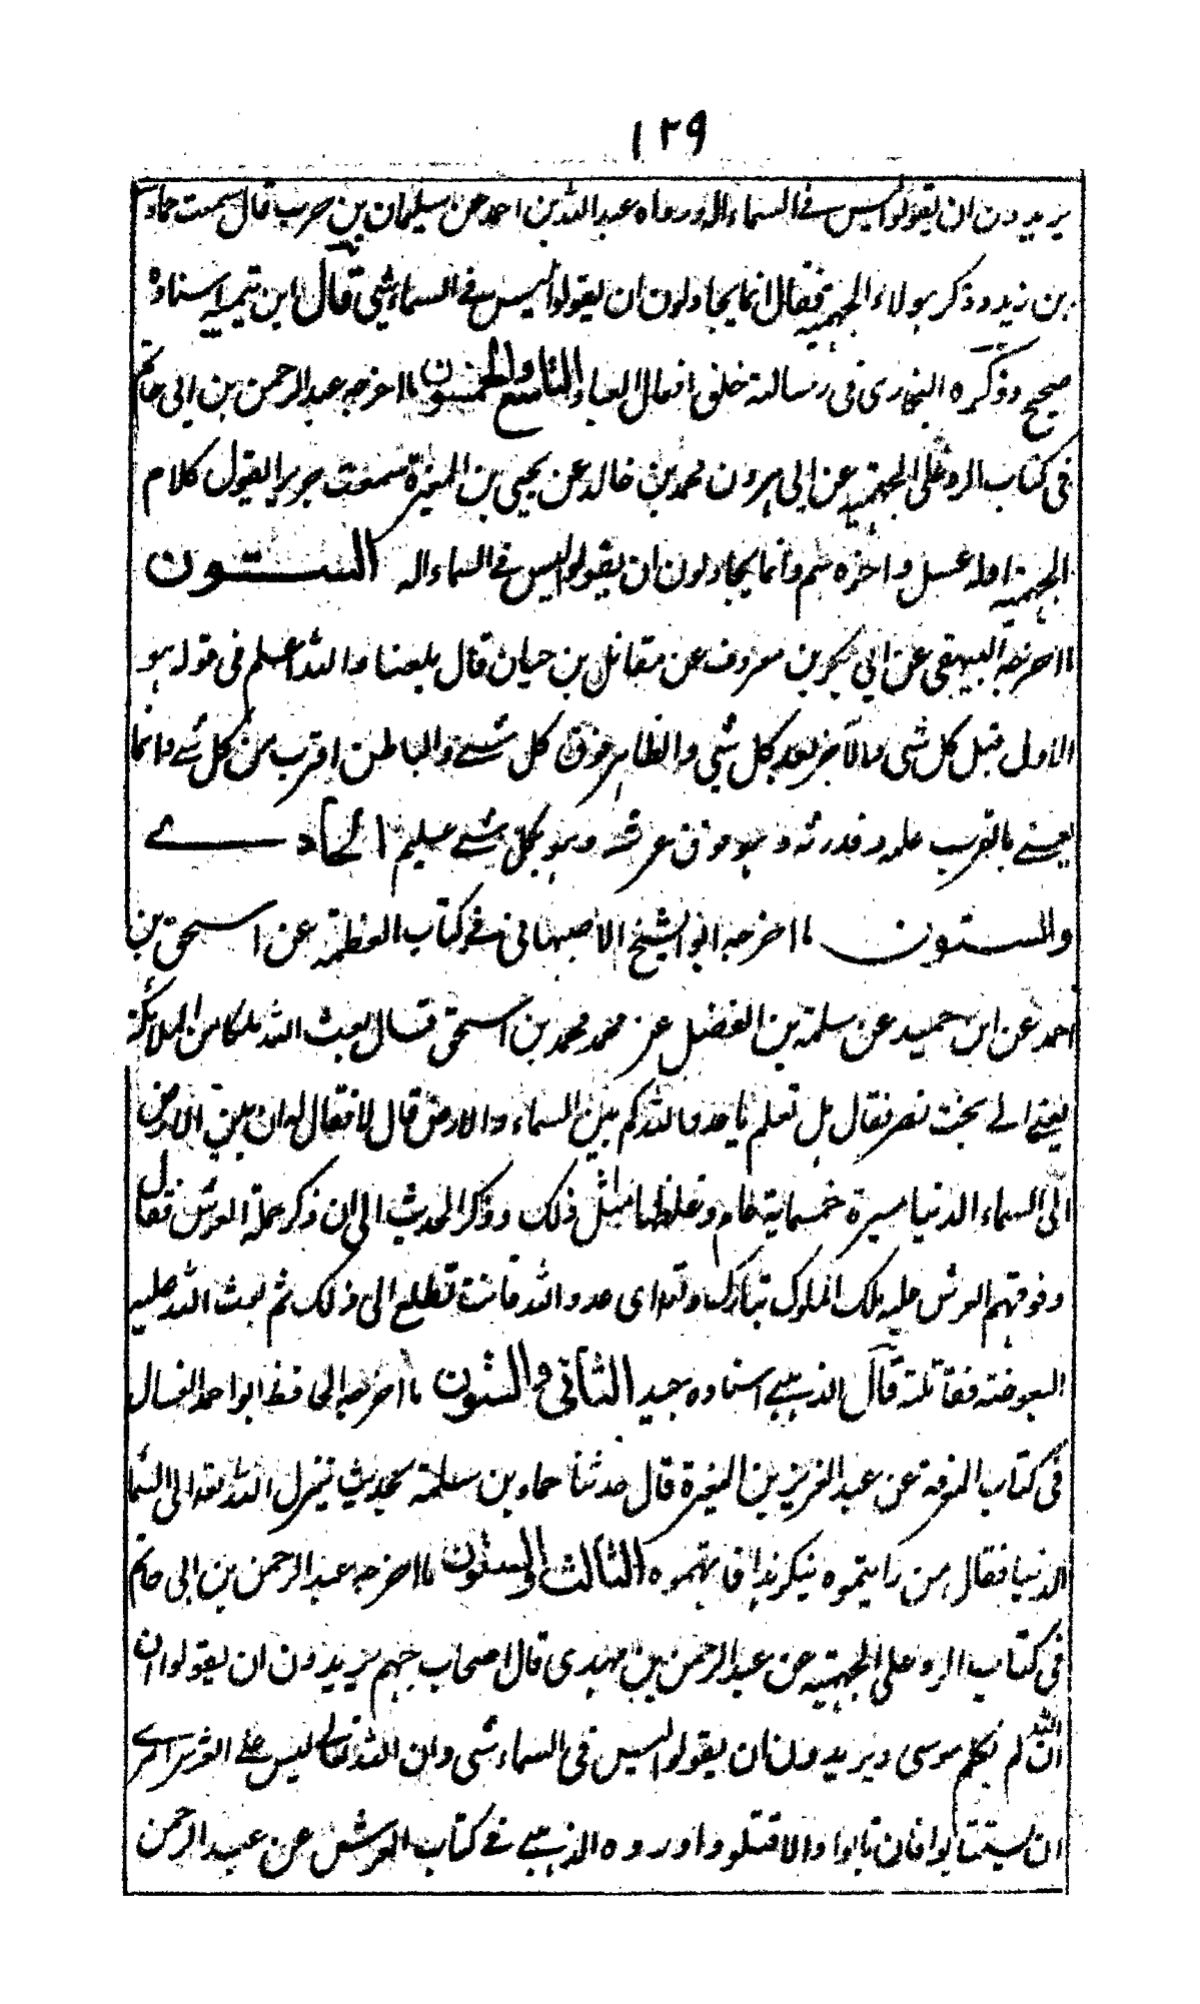 ١٢٩
يريدون ان يقولوا ليس في السماء اله ورواه عبد الله بن احمد عن سليمان بن حرب قال سمعت حماد
بن زيد وذكر هولاء الجهمية فقال انما يجادلون ان يقولوا ليس في السماء شي قال ابن تيمية اسناده
صحيح وذكره البخاري في رسالته خلق افعال العباد التاسع والخمسون ما اخرجه عبد الرحمن بن ابي حاتم
في كتاب الرد على الجهمية عن ابي هرون محمد بن خالد عن يحيى بن المغيرة سمعت جريرا يقول كلام
الجهمية اوله عسل واخره سم وانما يجادلون ان يقولوا ليس في السماء اله الستون
ما اخرجه البيهقي عن ابي بكير بن معروف عن مقاتل بن حيان قال بلغنا والله اعلم في قوله هو
الاول قبل كل شي والآخر بعد كل شي والظاهر فوق كل شيء والباطن اقرب من كل شيء وانما
يعني بالقرب علمه وقدرته وهو فوق عرشه وهو بكل شيء عليم الحادي
والستون ما اخرجه ابو الشيخ الاصبهاني في كتاب العظمة عن اسحق بن
احمد عن ابن حميد عن سلمة بن الفضل عن محمد بن اسحق قال بعث الله ملكا من الملائكة
يعني الى بخت نصر فقال هل تعلم يا عدو الله كم بين السماء والارض قال لا فقال له ان بين الارض
الى السماء الدنيا مسيرة خمسماية عام وغلظها مثل ذلك وذكر الحديث الى ان ذكر حملة العرش فقال
وفوقهم العرش عليه ملك الملوك تبارك وتعالى اي عدو الله فانت تطلع الى ذلك ثم بعث الله عليه
البعوضة فقتلته قال الذهبي اسناده جيد الثاني والستون ما اخرجه الحافظ ابو احمد العسال
في كتاب المعرفة عن عبد العزيز بن المغيرة قال حدثنا حماد بن سلمة بحديث ينزل الله تعالى الى السماء
الدنيا فقال من رايتموه ينكر هذا فاتهموه الثالث والستون ما اخرجه عبد الرحمن بن ابي حاتم
في كتاب الرد على الجهمية عن عبد الرحمن بن مهدي قال اصحاب جهم يريدون ان يقولوا ان
ان الله لم يكلم موسى ويريدون ان يقولوا ليس في السماء شي وان الله تعالى ليس على العرش ارى
ان يستتابوا فان تابوا والا قتلوا واورده الذهبي في كتاب العرش عن عبد الرحمن